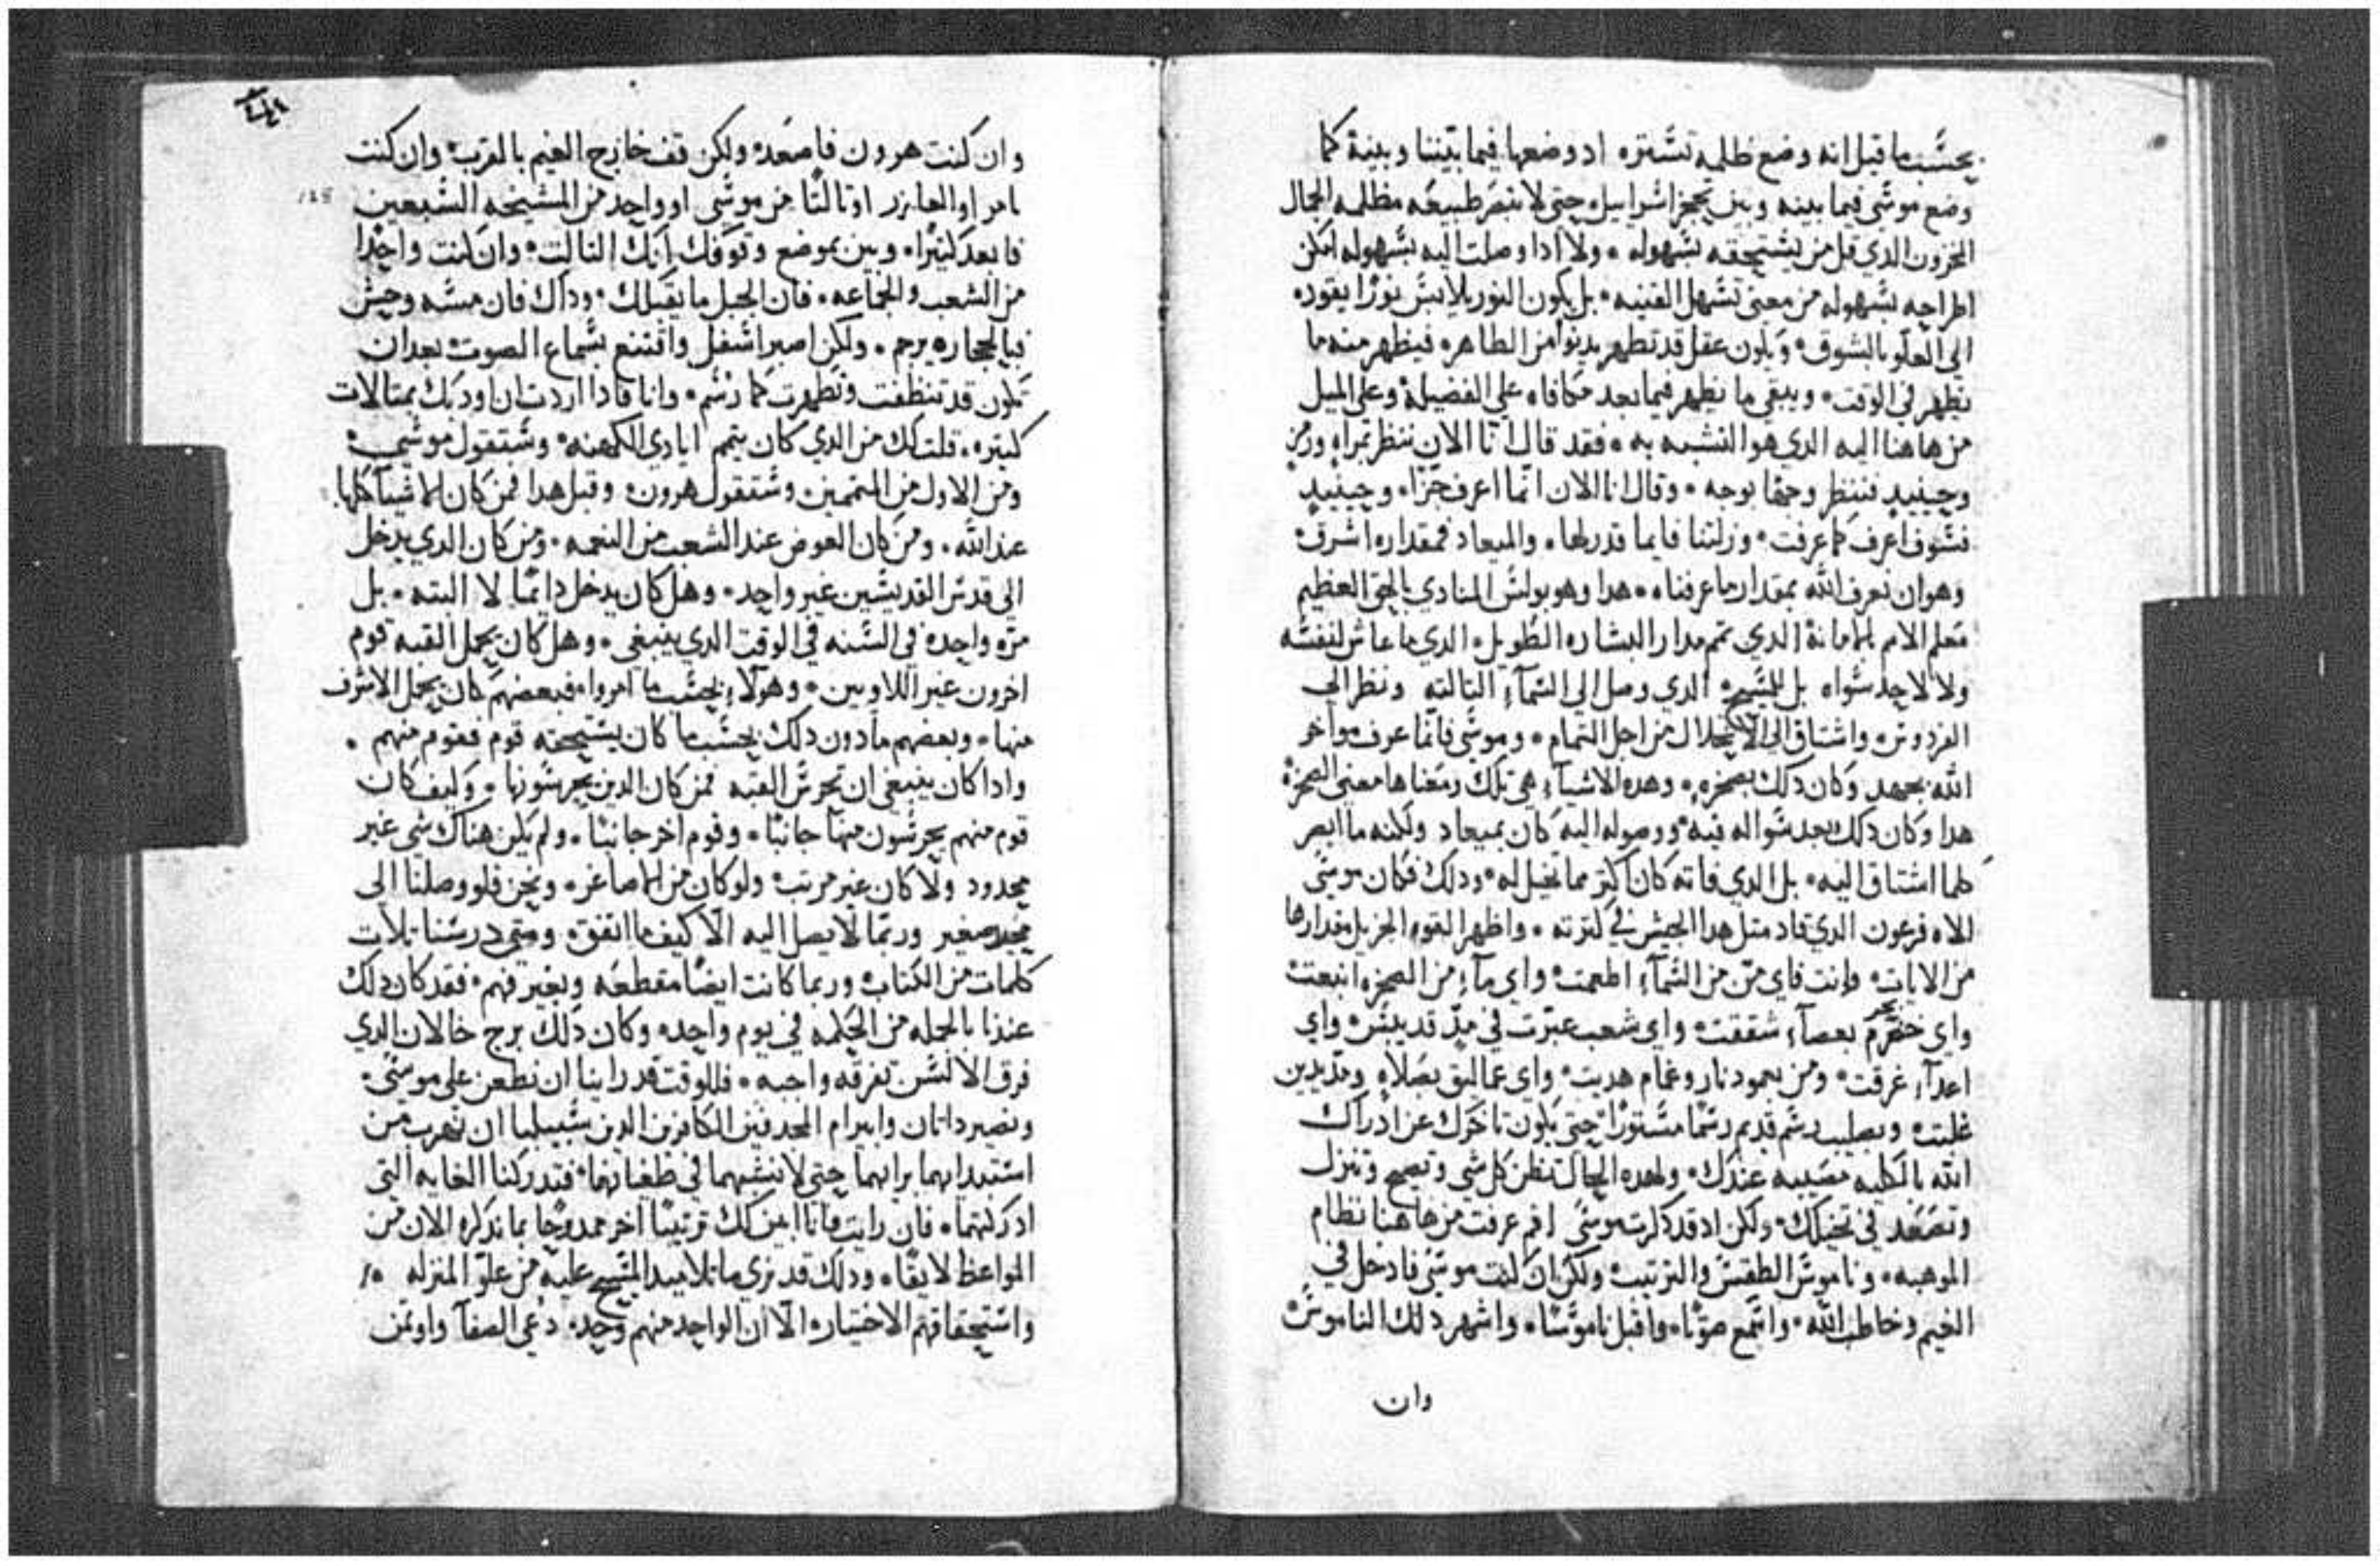 بحسب ما قيل انه وضع ظلمه تستره اد وضعها فيما بيننا وبينه كما
وضع موسي فيما بينه وبين تحجر اسراييل حتي لا تبصر طبيعه مظلمه الجمال
المخزون الدي قل من يستحقه بسهوله ولا ادا وصلت اليه بسهوله امكن
اطراحه بسهوله من معني تسهل القنيه بل يكون النور يلابس نورا يقوده
الي العلو بالشوق ويكون عقل قد تطهر يدنوا من الطاهر فيظهر منه ما
يظهر في الوقت ويبقي ما يظهر فيما بعد مكافاه علي الفضيله وعلي الميل
من هاهنا اليه الدي هو التشبه به فقد قال انا الان ننظر بمراه ورمز
وحينيد فننظر وجها بوجه وقال انا الان انما اعرف جزا وحينيد
فسوف اعرف كما عرفت وزلتنا فايما قدرها والميعاد فمقداره اشرف
وهو ان نعرف الله بمقدار ما عرفناه هدا وهو بولس المنادي بالحق العظيم
معلم الامم بالامانة الدي تمم مدار البشاره الطويل الدي ما عاش لنفسه
ولا لاحد سواه بل للمسيح الدي وصل الي السمآء التالته ونظر الي
الفردوس واشتاق الي الانحلال من اجل التمام وموسي فانما عرف مواخر
الله بجهد وكان دلك بصخره وهده الاشيآء هي تلك ومعناها معني الصخرة
هدا وكان دلك بعد سواله فيه ووصوله اليه كان بميعاد ولكنه ما ابصر
كلما اشتاق اليه بل الدي فاته كان اكتر مما تخيل له ودلك فكان موسي
الاه فرعون الدي قاد متل هدا الجيش في كترته واظهر القوه الجزيل مقدارها
من الايات وانت فاي من من السمآء اطعمت واي مآء من الصخره انبعت
واي بحر بعصآء شققت واي شعب عبرت في قديس واي
اعدآء غرقت ومن بعمود نار وغمام هديت واي عماليق بصلاه ومديدين
غلبت وبصليب رسم قديم رسما مستورا حتي يكون تاخرك عن ادراك
الله بالكليه مصيبه عندك ولهده الحال تظن كل شي وتصيح وتنزل
وتصعد في تخيلك ولكن اد قد دكرت موسي افم عرفت من هاهنا نظام
الموهبه وناموس الطقس والترتيب ولكن ان كنت موسي فادخل في
الغيم وخاطب الله واسمع صوتا واقبل ناموسا واشهر دلك الناموس
وان
وان كنت هرون فاصعد ولكن قف خارج الغيم بالقرب وان كنت
تامر او العازر او تالتا من موسي او واحد من المشيخه السبعين
فابعد كتيرا وبين بموضع وقوفك انك التالت وان كنت واحدا
من الشعب والجماعه فان الجبل ما يقبلك وداك فان مسه وحش
فبالحجاره يرجم ولكن اصبر اسفل واقتنع بسماع الصوت بعد ان
تكون قد تنظفت وتطهرت كما رسم وانا فادا اردت ان اودبك بمتالات
كتيره قلت لك من الدي كان يتمم ايادي الكهنه وستقول موسي
ومن الاول من المتممين وستقول هرون وقبل هدا فمن كان الاشيآ كلها
عند الله ومن كان العوض عند الشعب من النعمه ومن كان الدي يدخل
الي قدس القديسين غير واحد وهل كان يدخل دايما لا البته بل
مره واحده في السنه في الوقت الدي ينبغي وهل كان يحمل القبه قوم
اخرون غير اللاويين وهولاء بحسب ما امروا فبعضهم كان يحمل الاشرف
منها وبعضهم مادون دلك بحسب ما كان يستحقه قوم فقوم منهم
وادا كان ينبغي ان تحرس القبه فمن كان الدين يحرسونها وكيف كان
قوم منهم يحرسون منها جانبا وقوم اخر جانبا ولم يكن هناك شي غير
محدود ولا كان غير مرتب ولو كان من الاصاغر ونحن فلو وصلنا الي
مجد صغير وربما لا يصل اليه الا كيف ما اتفق ومتي درسنا تلات
كلمات من الكتاب وربما كانت ايضا مقطعه وبغير فهم فقد كان دلك
عندنا بالجمله من الحكمه في يوم واحد وكان دلك برج خالان الدي
فرق الالسن تفرقه واجبه فللوقت قد راينا ان نطعن علي موسي
ونصير داتان وابيرام المجدفين الكافرين الدين سبيلنا ان نهرب من
استبدادهما برايهما حتي لا نتشبهما في طغيانهما فتدركنا الغايه التي
ادركتهما فان رايت فانا ابين لك ترتيبا اخر ممدوحا بما ندكره الان من
المواعظ لايقا ودلك قد نري ما تلاميد المسيح عليه من علو المنزله
واستحقاقهم الاختياره الا ان الواحد منهم وحده دعي الصفآ واوتمن